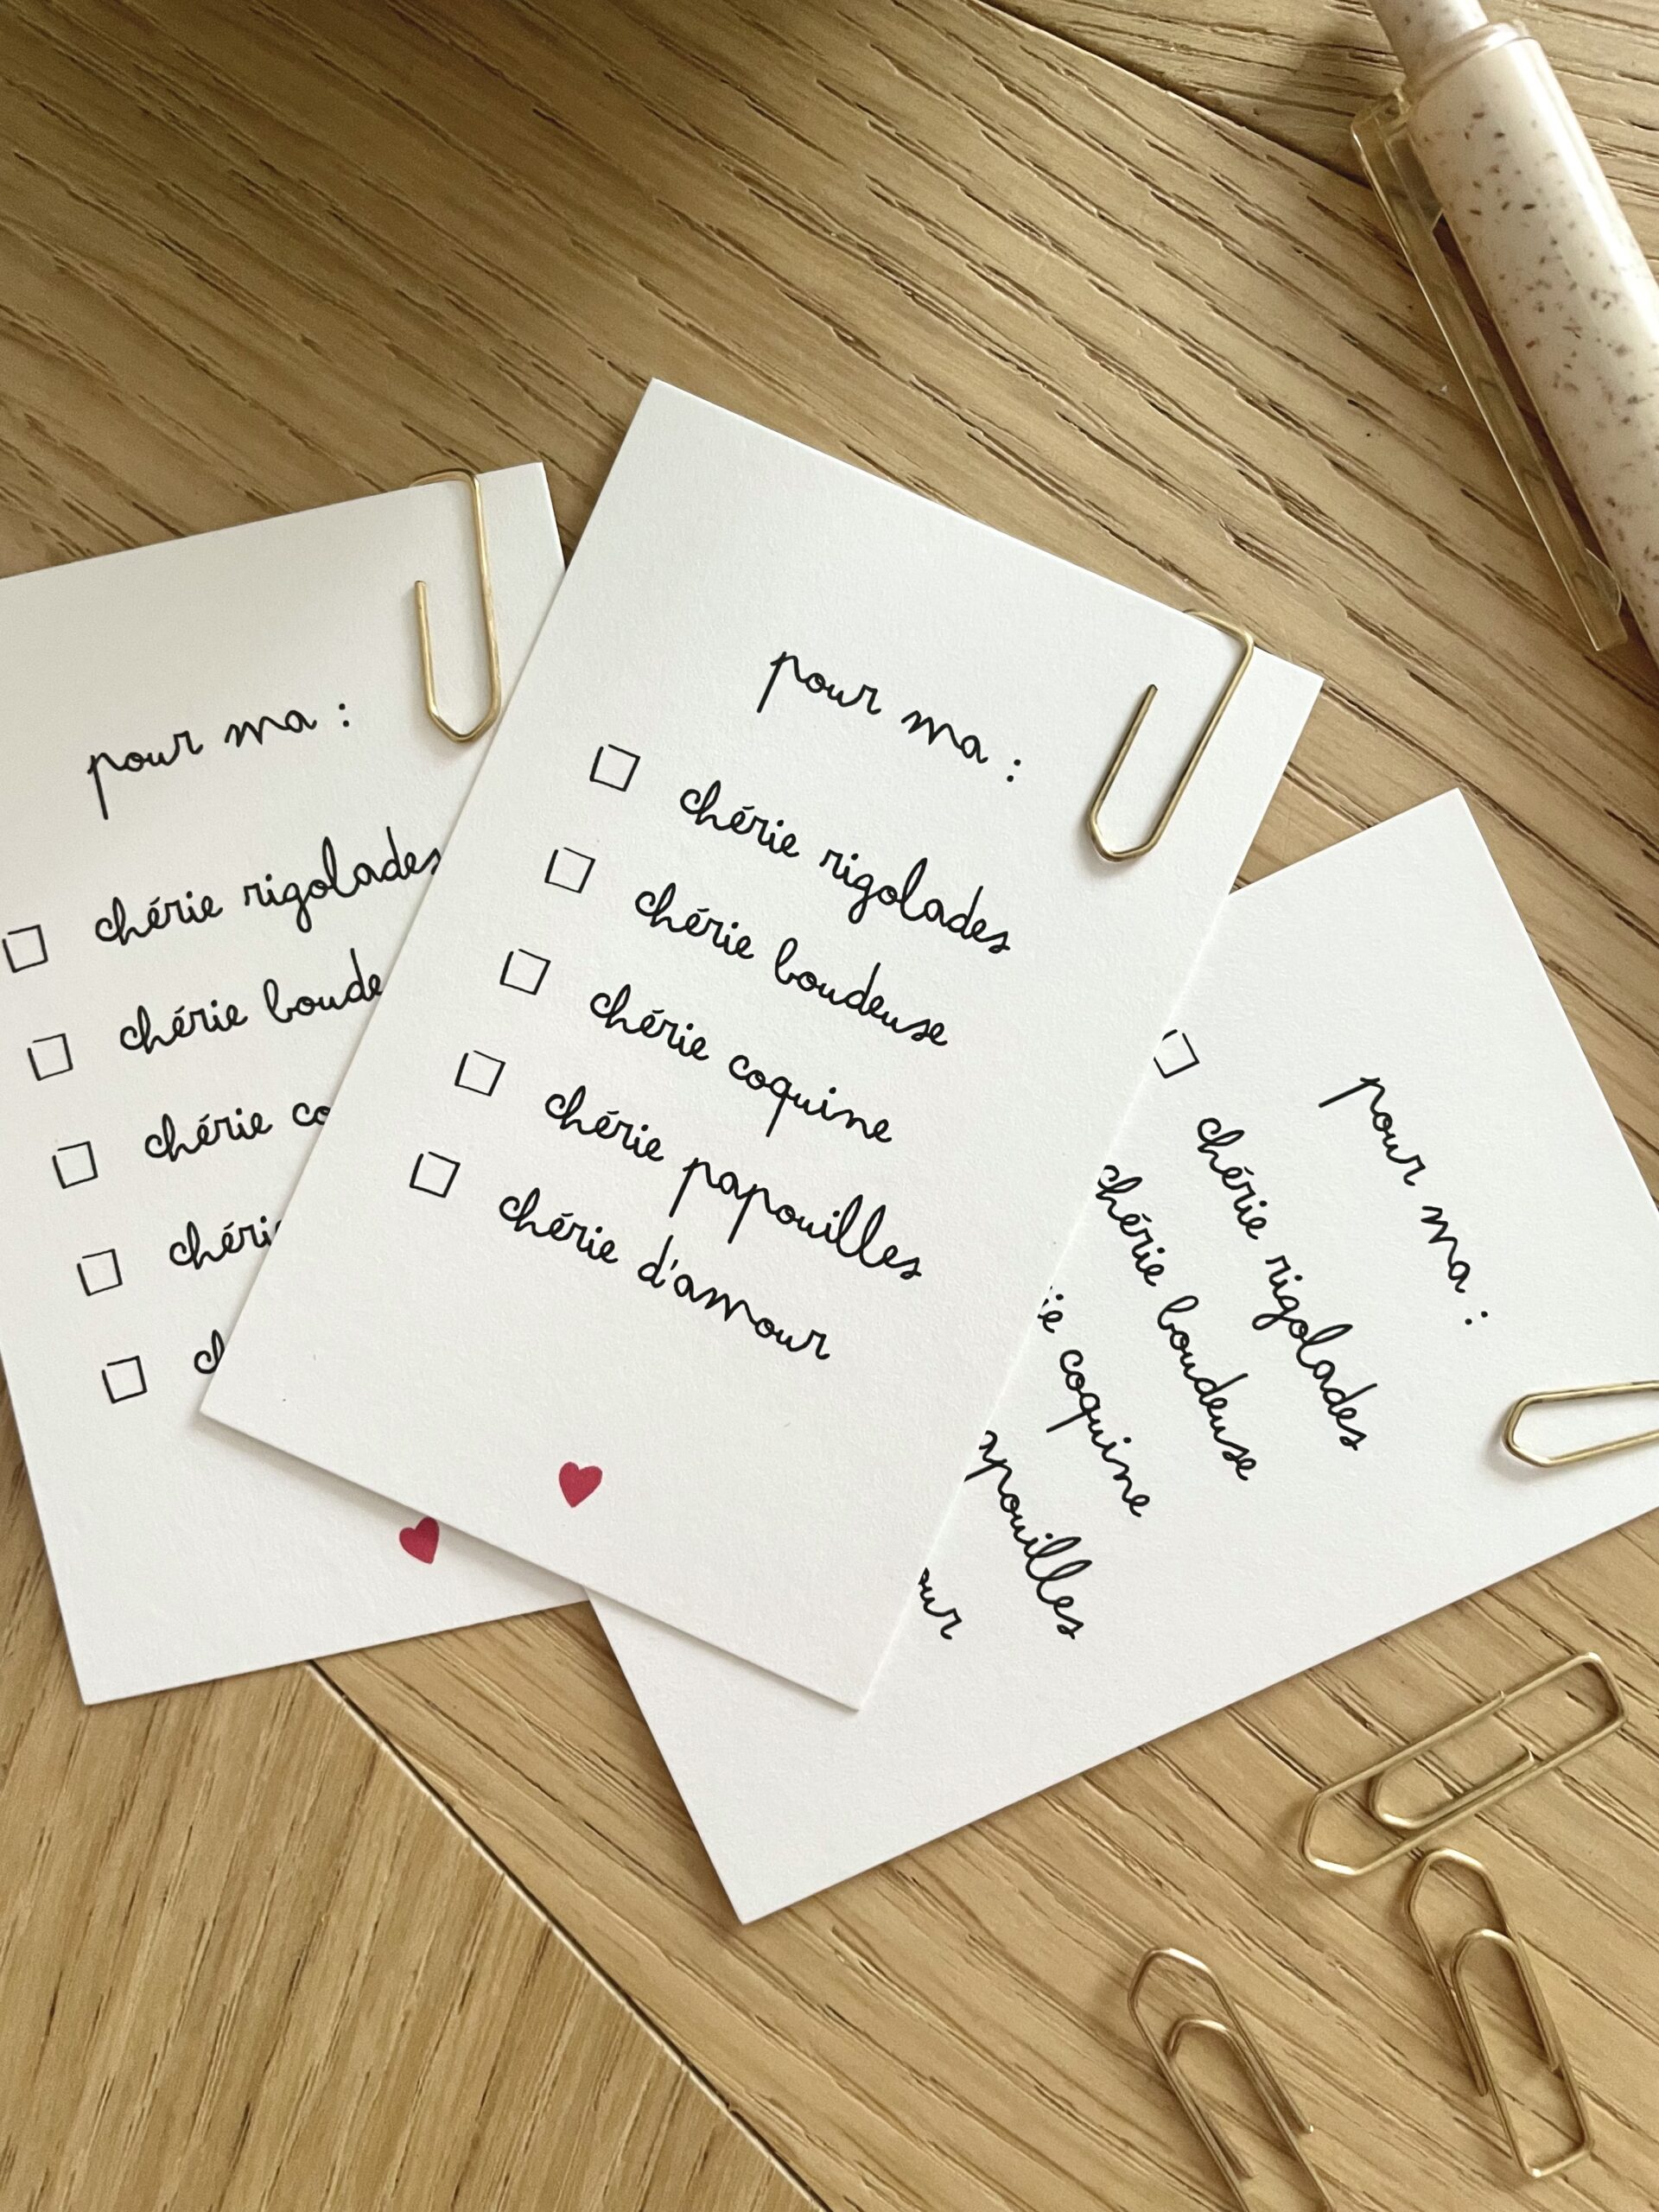 pour ma :
chérie rigolades
chérie boude
chérie
pour ma :
chérie rigolades
chérie boudeuse
chérie coquine
chérie papouilles
chérie d'amour
pour ma :
chérie rigolades
chérie boudeuse
coquine